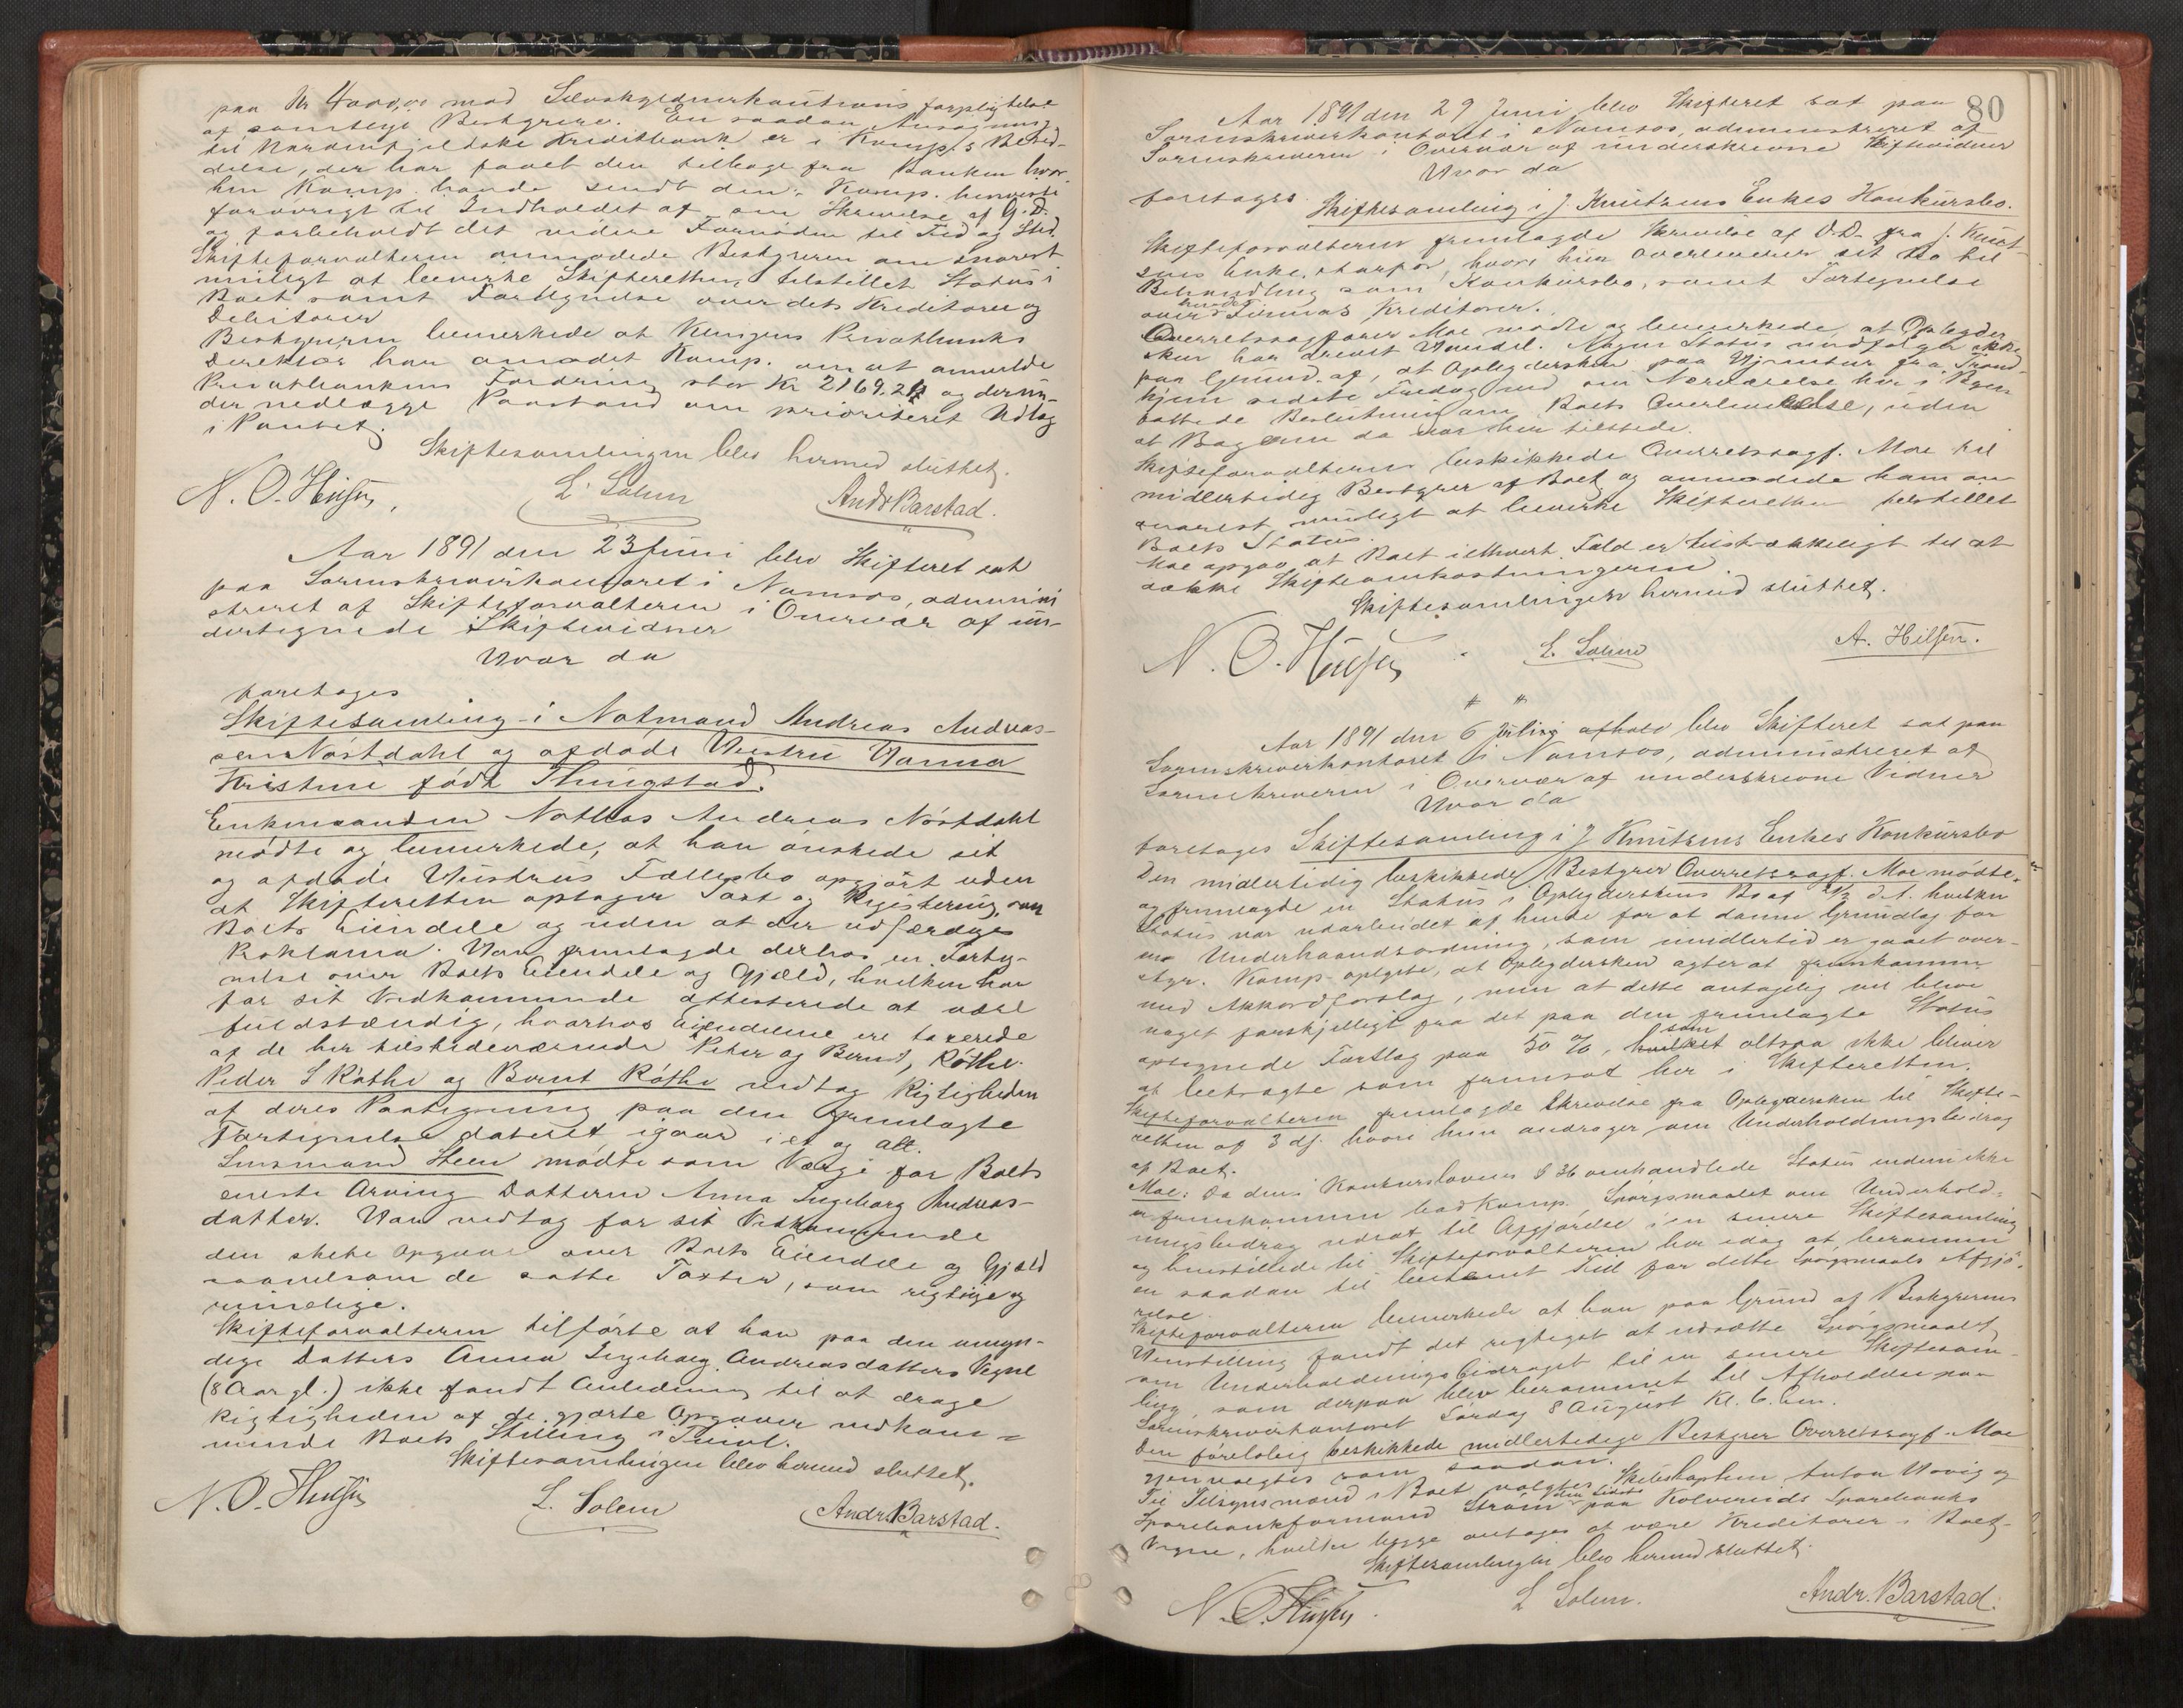 paa Kr 4000,00 mod Selvskyldnerkautions forpligtelse
af samtlige Bestyrere. En saadan Ansøgning
til Nordenfjeldske Kreditbank er i Komp.s Besid-
delse, der har faaet den tilbage fra Banken hvor
hen Komp. havde sendt den. Komp. henviste
forøvrigt til Indholdet af sin Skrivelse af G. D.
og forbeholdt det videre Fornødne til Tid og Sted.
Skifteforvalteren anmodede Bestyreren om snarest
muligt at levere Skifteretten, tilstillet Status i
Boet samt Fortegnelse over dets Kreditorer og
Debitorer
Bestyreren bemerkede at Klingens Privatbanks
Direktør har anmodet Komp. om at anmelde
Privatbankens Fordring stor Kr 2169.24 og derun-
der nedlægge Paastand om prioriteret Udlæg
i Pantet.
Skiftesamlingen blev hermed sluttet.
L. Solem
Andr Barstad.
Aar 1891 den 23 Juni blev Skifteret sat
paa Sorenskriverkontoret i Namsos, admini
streret af Skifteforvalteren i Overvær af un-
dertegnede Skiftevidner
Hvor da
foretoges
Skiftesamling i Notmand Andreas Andreas-
sen Nøstdahl og afdøde Hustru Hanna
Kristine født Thingstad.
Enkemanden Notbas Andreas Nøstdahl
mødte og bemerkede, at han ønskede sit
og afdøde Hustrus Fællesbo opgjørt uden
at Skifteretten optager Taxt og Registrering over
Boets Eiendele og uden at der udfærdiges
Proklama. Han fremlagde derhos en Forteg-
nelse over Boets Eiendele og Gjæld, hvilken han
for sit Vedkommende attesterede at være
fuldstændig, hvorhos Eiendelene ere taxerede
af de her tilstedeværende Peter og Bernt Røthe.
Peder S Røthe og Bernt Røthe vedtog Rigtigheden
af deres Paategning paa den fremlagte
Fortegnelse dateret igaar i et og alt.
Lensmand Steen mødte som Værge for Boets
eneste Arving Datteren Anna Ingeborg Andreas-
datter. Han vedtog for sit Vedkommende
den skete Opgave over Boets Eiendele og Gjæld
saavelsom de satte Taxter, som rigtige og
rimelige.
Skifteforvalteren tilførte at han paa den umyn-
dige Datters Anna Ingeborg Andreasdatters Vegne
(8 Aar gl.) ikke fandt Anledning til at drage
Rigtigheden af de gjorte Opgaver vedkom-
mende Boets Stilling i Tvivl.
Skiftesamlingen blev hermed sluttet.
L. Solem
Andr. Barstad.
80
Aar 1891 den 29 Juni blev Skifteret sat paa
Sorenskriverkontoret i Namsos, administreret af
Sorenskriveren i Overvær af underskrevne Skiftevidner
Hvor da
foretoges
Skiftesamling i J Knutzens Enkes Konkursbo.
Skifteforvalteren fremlagde Skrivelse af D.D. fra J. Knut-
zens Enke, hvori hun overleverer sit Bo til
Behandling som Konkursbo, samt Fortegnelse
over Firmas Kreditorer.
Overretssagfører Moe mødte og bemerkede, at Opbyder
sken har drevet Handel. Nogen Status medfølger ikke
paa Grund af, at Opbydersken paa Hjemtur fra Trond-
hjem sidste Fredag ved sin Nærværelse her i Byen
fattede Beslutning om Boets Overleverelse, uden
at Bøgerne da var her tilstede.
Skifteforvalteren beskikkede Overretssagf. Moe til
midlertidig Bestyrer af Boet og anmodede ham om
snarest muligt at levere Skifteretten tilstillet
Boets Status.
Moe opgav at Boet i ethvert Fald er tilstrækkeligt til at
dække Skifteomkostningerne.
Skiftesamlingen hermed sluttet.
L. Solem
A. Hilsen.
Aar 1891 den 6 Juli blev Skifteret sat paa
Sorenskriverkontoret i Namsos, administreret af
Sorenskriveren i Overvær af underskrevne Vidner
Hvor da
foretoges Skiftesamling i J Knutzens Enkes Konkursbo
Den midlertidig beskikkede Bestyrer Overretssagf. Moe mødte
og fremlagde en Status i Opbyderskens Bo af d. A. hvilken
Status var udarbeidet af hende for at danne Grundlag for
en Underhaandsordning, som imidlertid er gaaet over-
styr. Komp. oplyste, at Opbydersken agter at fremkomme
med Akkordforslag, men at dette antagelig vil blive
noget forskjelligt fra det paa den fremlagte Status
optegnede Forslag paa 50 %, som altsaa ikke bliver
at betragte som fremsat her i Skifteretten.
Skifteforvalteren fremlagde Skrivelse fra Opbydersken til Skifte-
retten af 3 ds. hvori hun andrager om Underholdningsbidrag
af Boet.
Moe: Da den i Konkurslovens § 36 omhandlede Status endnu ikke
er fremkommen bad Komp. Spørgsmaalet om Underhold-
ningsbidrag udsat til Afgjørelse i en senere Skiftesamling
og henstillede til Skifteforvalteren her idag at beramme
en saadan til bestemt Tid for dette Spørgsmaals Afgjø-
relse.
Skifteforvalteren bemerkede at han paa Grund af Bestyrerens
Henstilling fandt det rigtigst at udsætte Spørgsmaalet
om Underholdningsbidraget til en senere Skiftesam-
ling, som derpaa blev berammet til Afholdelse paa
Sorenskriverkontoret Lørdag 8 August Kl. 6. Em.
Den foreløbig beskikkede midlertidige Bestyrer Overretssagf. Moe
gjenvalgtes som saadan.
Til Tilsynsmænd i Boet valgtes Skibskaptein Anton Hovig og
Sparebankformand Strøm, den sidste paa Kolvereids Sparebanks
Vegne, hvilke begge antages at være Kreditorer i Boet.
Skiftesamlingen blev hermed sluttet.
L Solem.
Andr. Barstad.